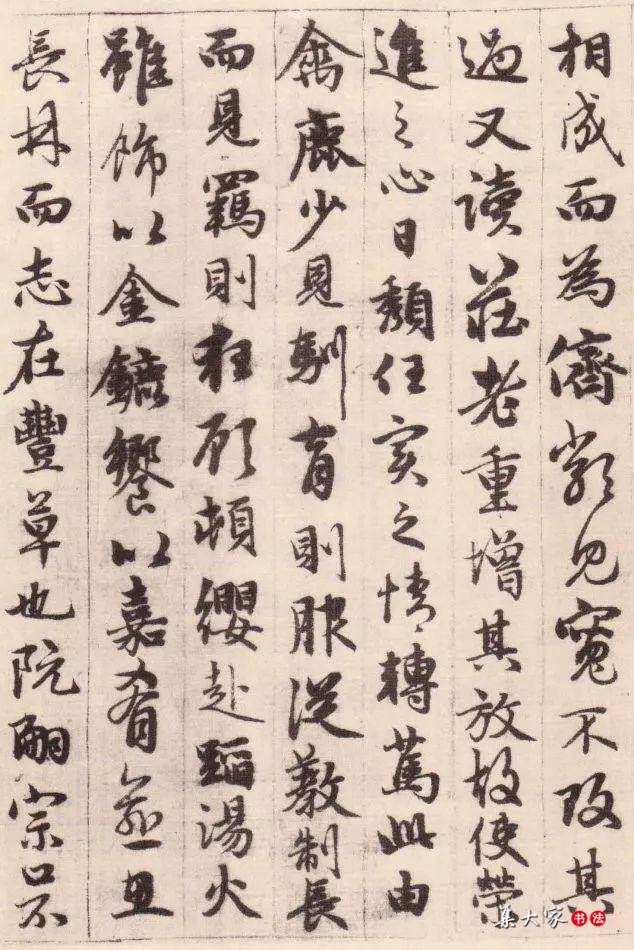 相成而為儕類見寬不攻其
過又讀莊老重增其放故使榮
進之心日頹任實之情轉篤此由
禽鹿少見馴育則服從教制長
而見羈則狂顧頓纓赴蹈湯火
雖飾以金鑣饗以嘉肴愈思
長林而志在豐草也阮嗣宗口不
集大家书法